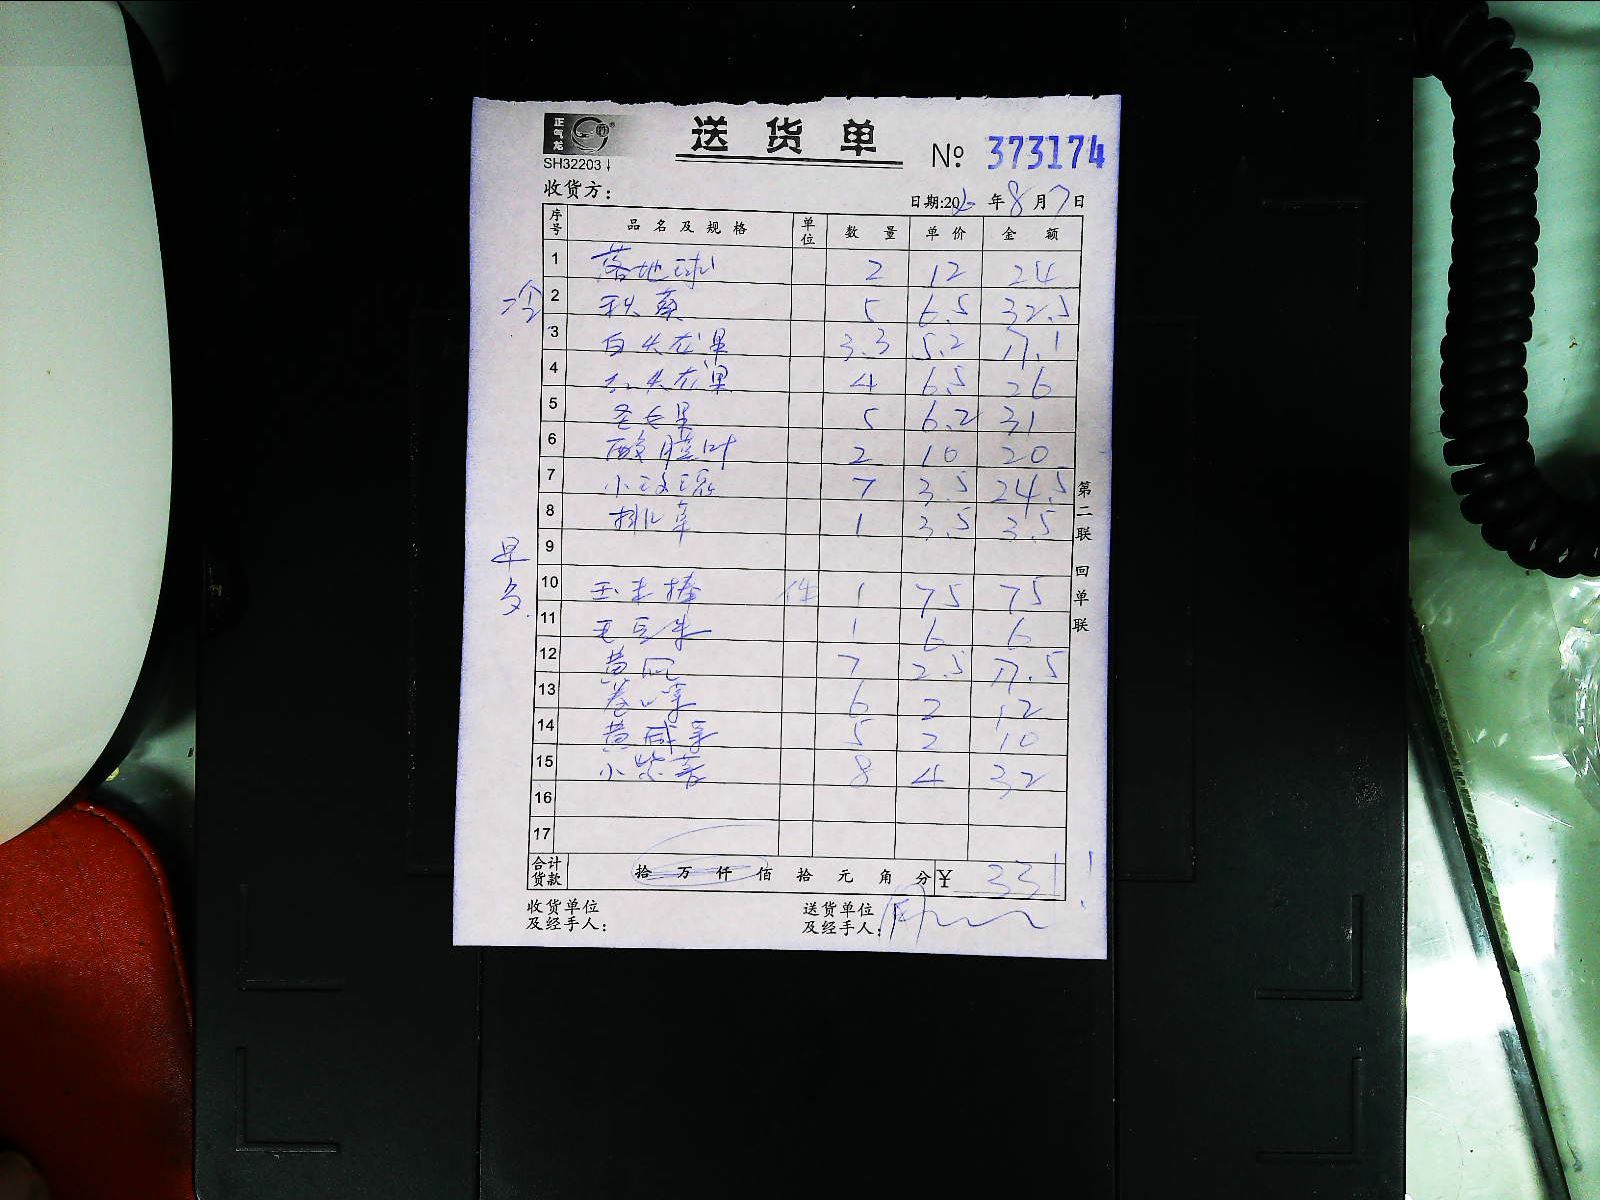 正气龙
SH32203↓
送货单
№ 373174
收货方：
日期:20 年8月7日
序号 品名及规格 单位 数量 单价 金额
1 落地球 2 12 24
冷
2 秋葵 5 6.5 32.5
3 白火龙果 3.3 5.2 17.1
4 红火龙果 4 6.5 26
5 圣女果 5 6.2 31
6 酸膜叶 2 10 20
7 小玫瑰 7 3.5 24.5
8 排草 1 3.5 3.5
早
9
10 玉米棒 件 1 75 75
11 毛豆米 1 6 6
12 黄瓜 7 2.5 17.5
13 6 2 12
14 5 2 10
15 小紫薯 8 4 32
16
17
合计货款 拾 万 仟 佰 拾 元 角 分 ¥ 331
收货单位
及经手人：
送货单位
及经手人：
第二联 回单联